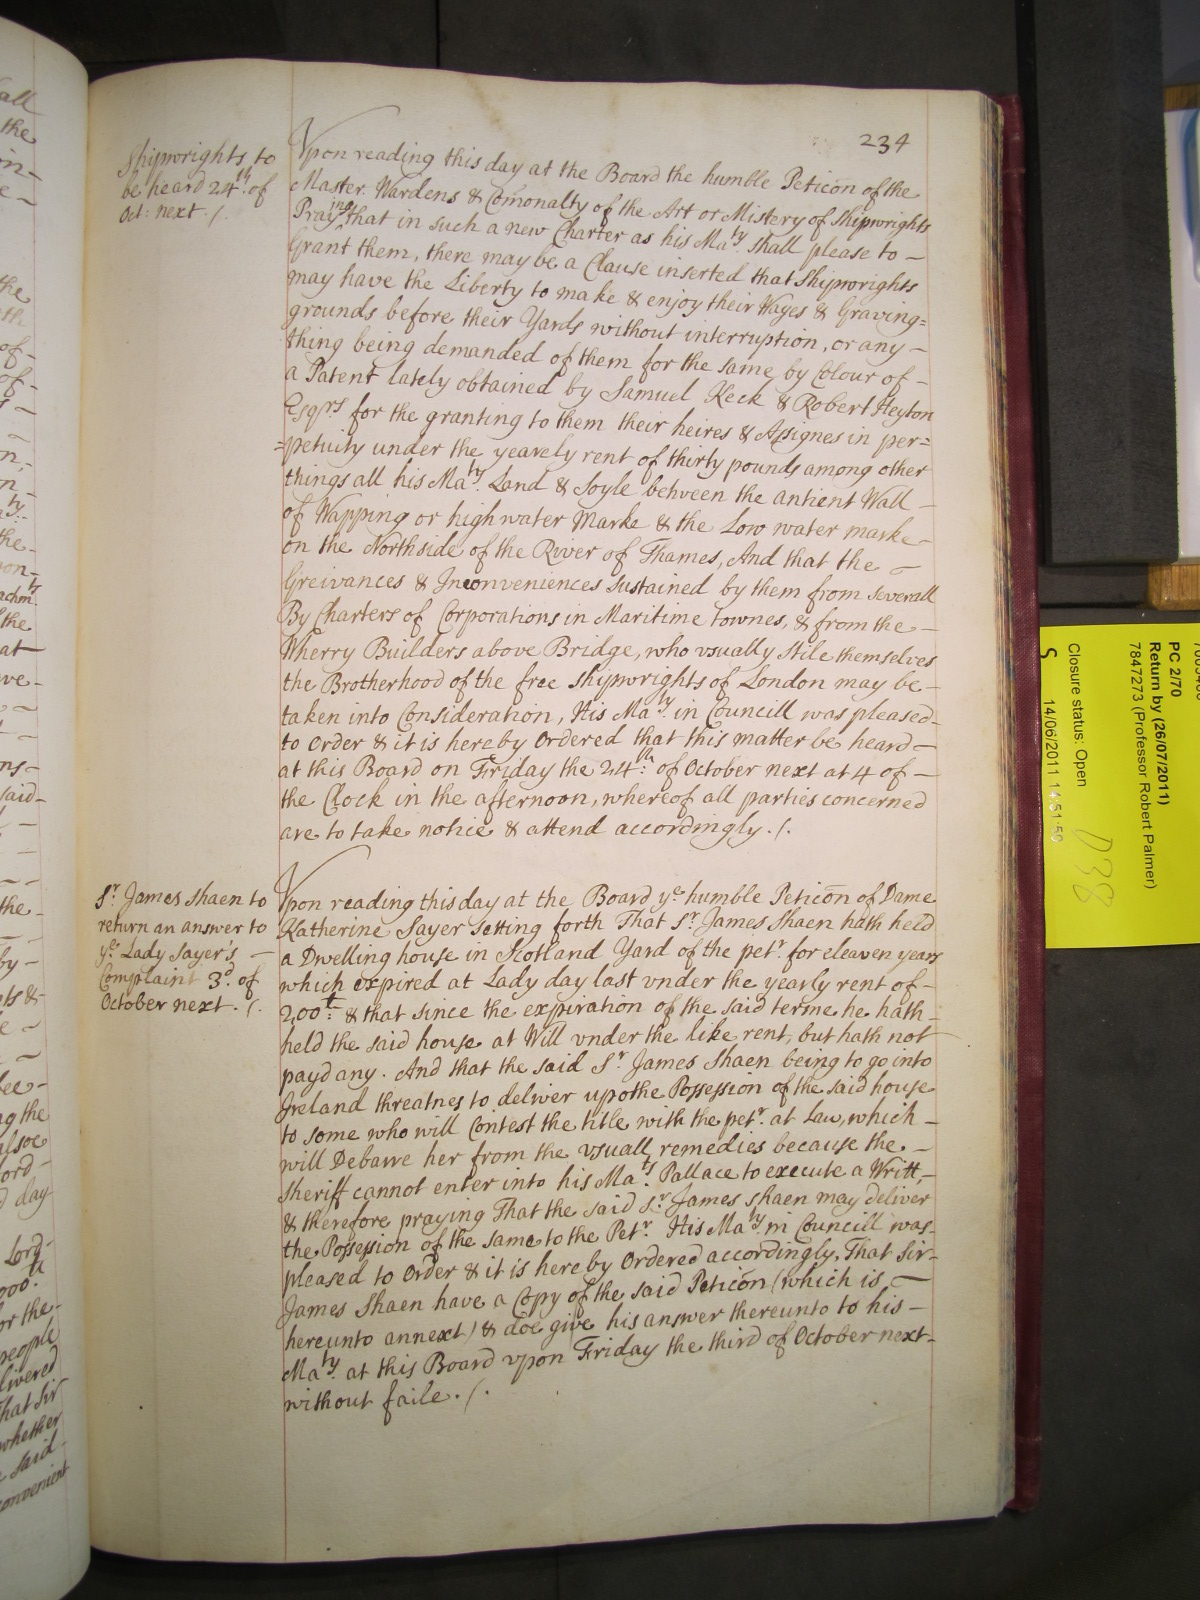 234
Shipwrights to
be heard 24th. of
Oct: next ./.
Vpon reading this day at the Board the humble Peticōn of the
Master Wardens & Com̄onalty of the Art or Mistery of Shipwrights
Praying that in such a new Charter as his Maty. shall please to –
Grant them, there may be a Clause inserted that Shipwrights
may have the Liberty to make & enjoy their Wayes & Graving=
grounds before their Yards without interruption, or any –
thing being demanded of them for the same by Colour of –
a Patent lately obtained by Samuel Keck & Robert Heyton
Esqrs for the granting to them their heires & Assignes in per=
=petuity under the yearely rent of thirty pounds among other
things all his Maty. Land & Soyle between the antient Wall –
of Wapping or high water Marke & the Low water marke –
on the Northside of the River of Thames, And that the –
Greivances & Inconveniences sustained by them from severall
By Charters of Corporations in Maritime townes, & from the –
Wherry Builders above Bridge, who vsually stile themselves
the Brotherhood of the free Shipwrights of London may be –
taken into Consideration, His Maty. in Councill was pleased –
to Order & it is hereby Ordered that this matter be heard –
at this Board on Friday the 24th: of October next at 4 of –
the Clock in the afternoon, whereof all parties concerned
are to take notice & attend accordingly ./.
Sr. James Shaen to
return an answer to
ye. Lady Sayer's –
Complaint 3d. of
October next ./.
Vpon reading this day at the Board ye humble Peticōn of Dame
Katherine Sayer setting forth That Sr. James Shaen hath held
a Dwelling house in Scotland Yard of the petr. for eleaven years
which expired at Lady day last vnder the yearly rent of –
200l: & that since the expiration of the said terme he hath –
held the said house at Will vnder the like rent, but hath not
payd any. And that the said Sr. James Shaen being to go into
Ireland threatnes to deliver up the Possession of the said house
to some who will Contest the title with the petr. at Law, which –
will Debarre her from the vsuall remedies because the –
Sheriff cannot enter into his Mats. Pallace to execute a Writt, –
& therefore praying That the said Sr. James Shaen may deliver
the Possession of the same to the Petr. His Maty. in Councill was –
pleased to Order & it is hereby Ordered accordingly, That Sir –
James Shaen have a Copy of the said Peticōn (which is –
hereunto annext) & doe give his answer thereunto to his –
Maty. at this Board vpon Friday the third of October next –
without faile ./.
PC 2/70
Return by (26/07/2011)
7847273 (Professor Robert Palmer)
Closure status: Open
S 14/06/2011 11:51:50
D38